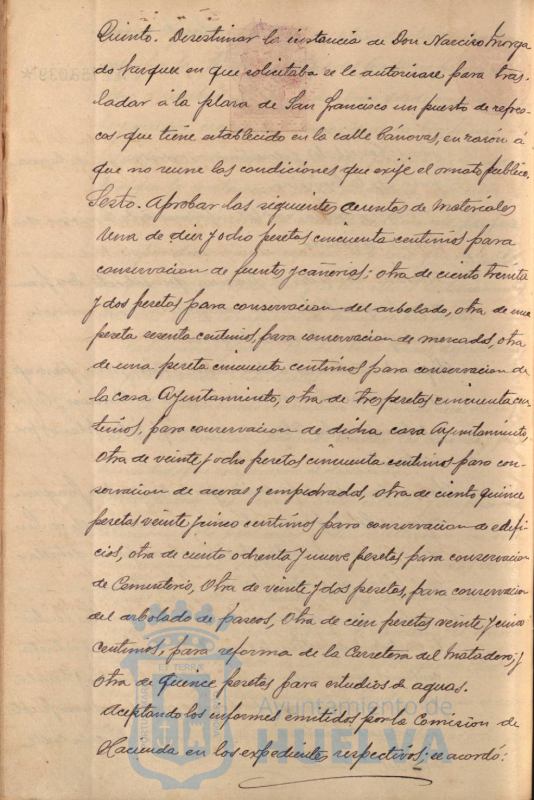 Quinto. Desestimar la instancia de Don Narciso Morga
do Vazquez en que solicitaba se le autorizase para tras
ladar á la plaza de San Francisco un puesto de refres
cos que tiene establecido en la calle Cánovas, en razón á
que no reune las condiciones que exije el ornato publico.
Sexto. Aprobar las siguientes cuentas de materiales
Una de diez y ocho pesetas cincuenta centimos para
conservacion de fuentes y cañerias; otra de ciento treinta
y dos pesetas para conservacion del arbolado, otra de una
peseta sesenta centimos, para conservacion de mercados, otra
de una peseta cincuenta centimos para conservacion de
la casa Ayuntamiento, otra de tres pesetas cincuenta cen
timos, para conservacion de dicha casa Ayuntamiento,
Otra de veinte y ocho pesetas cincuenta centimos para con
servacion de aceras y empedrados, otra de ciento quince
pesetas veinte y cinco centimos para conservacion de edifi
cios, otra de ciento ochenta y nueve pesetas para conservacion
de Cementerio, Otra de veinte y dos pesetas, para conservacion
del arbolado de paseos, Otra de cien pesetas veinte y cinco
centimos, para reforma de la Carretera del Matadero; y
Otra de quince pesetas para estudios de aguas.
Aceptando los informes emitidos por la Comision de
Hacienda en los expedientes respectivos; se acordó:
Ayuntamiento de
HUELVA